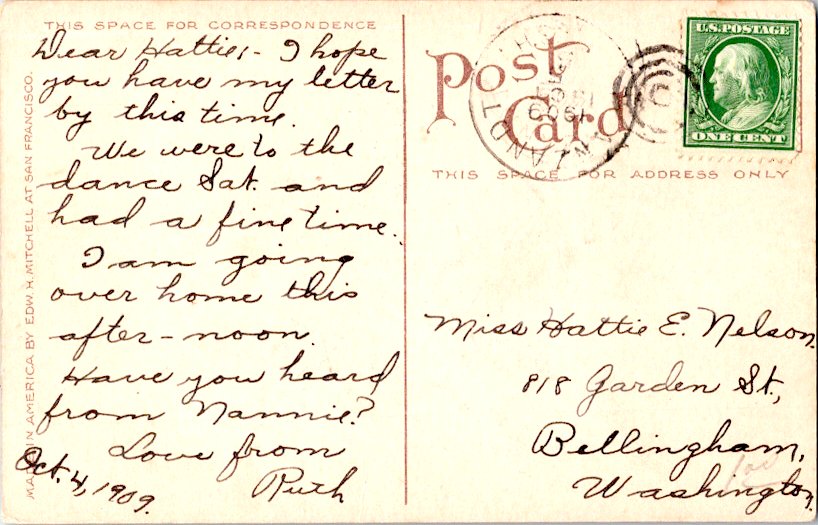 THIS SPACE FOR CORRESPONDENCE
Dear Hattie;- I hope
you have my letter
by this time.
We were to the
dance Sat. and
had a fine time.
I am going
over home this
after-noon.
Have you heard
from Nannie?
Love from
Ruth
Oct. 4, 1909.
MADE IN AMERICA BY EDW. H. MITCHELL AT SAN FRANCISCO.
Post
Card
THIS SPACE FOR ADDRESS ONLY
U.S. POSTAGE
ONE CENT
1909
Miss Hattie E. Nelson.
818 Garden St.,
Bellingham,
Washington.